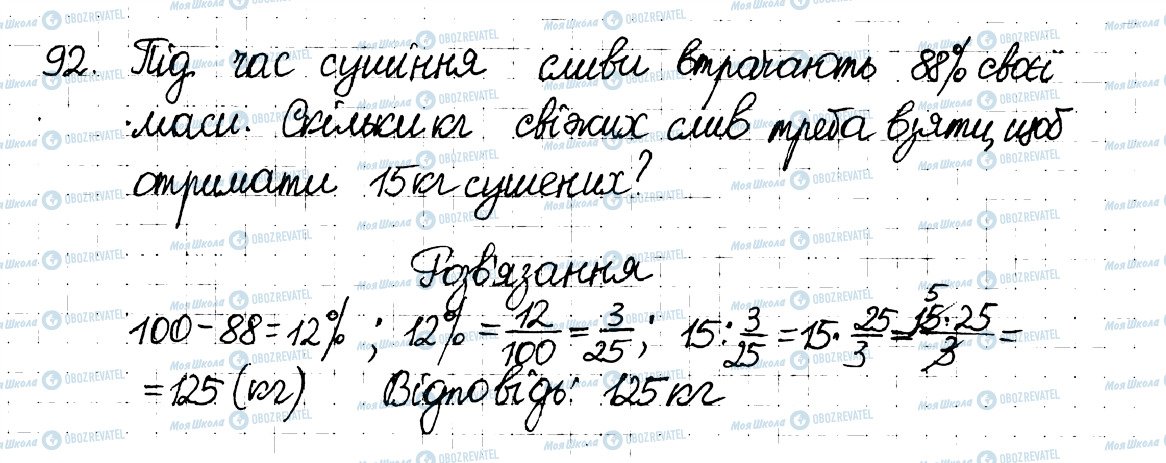 92. Під час сушіння сливи втрачають 88% своєї
маси. Скільки кг свіжих слив треба взяти, щоб
отримати 15 кг сушених?
Розв'язання
100 - 88 = 12% ; 12% = 12/100 = 3/25 ; 15 : 3/25 = 15 · 25/3 = 15 · 25/3 =
5
= 125 (кг) Відповідь: 125 кг
МояШкола OBOZREVATEL